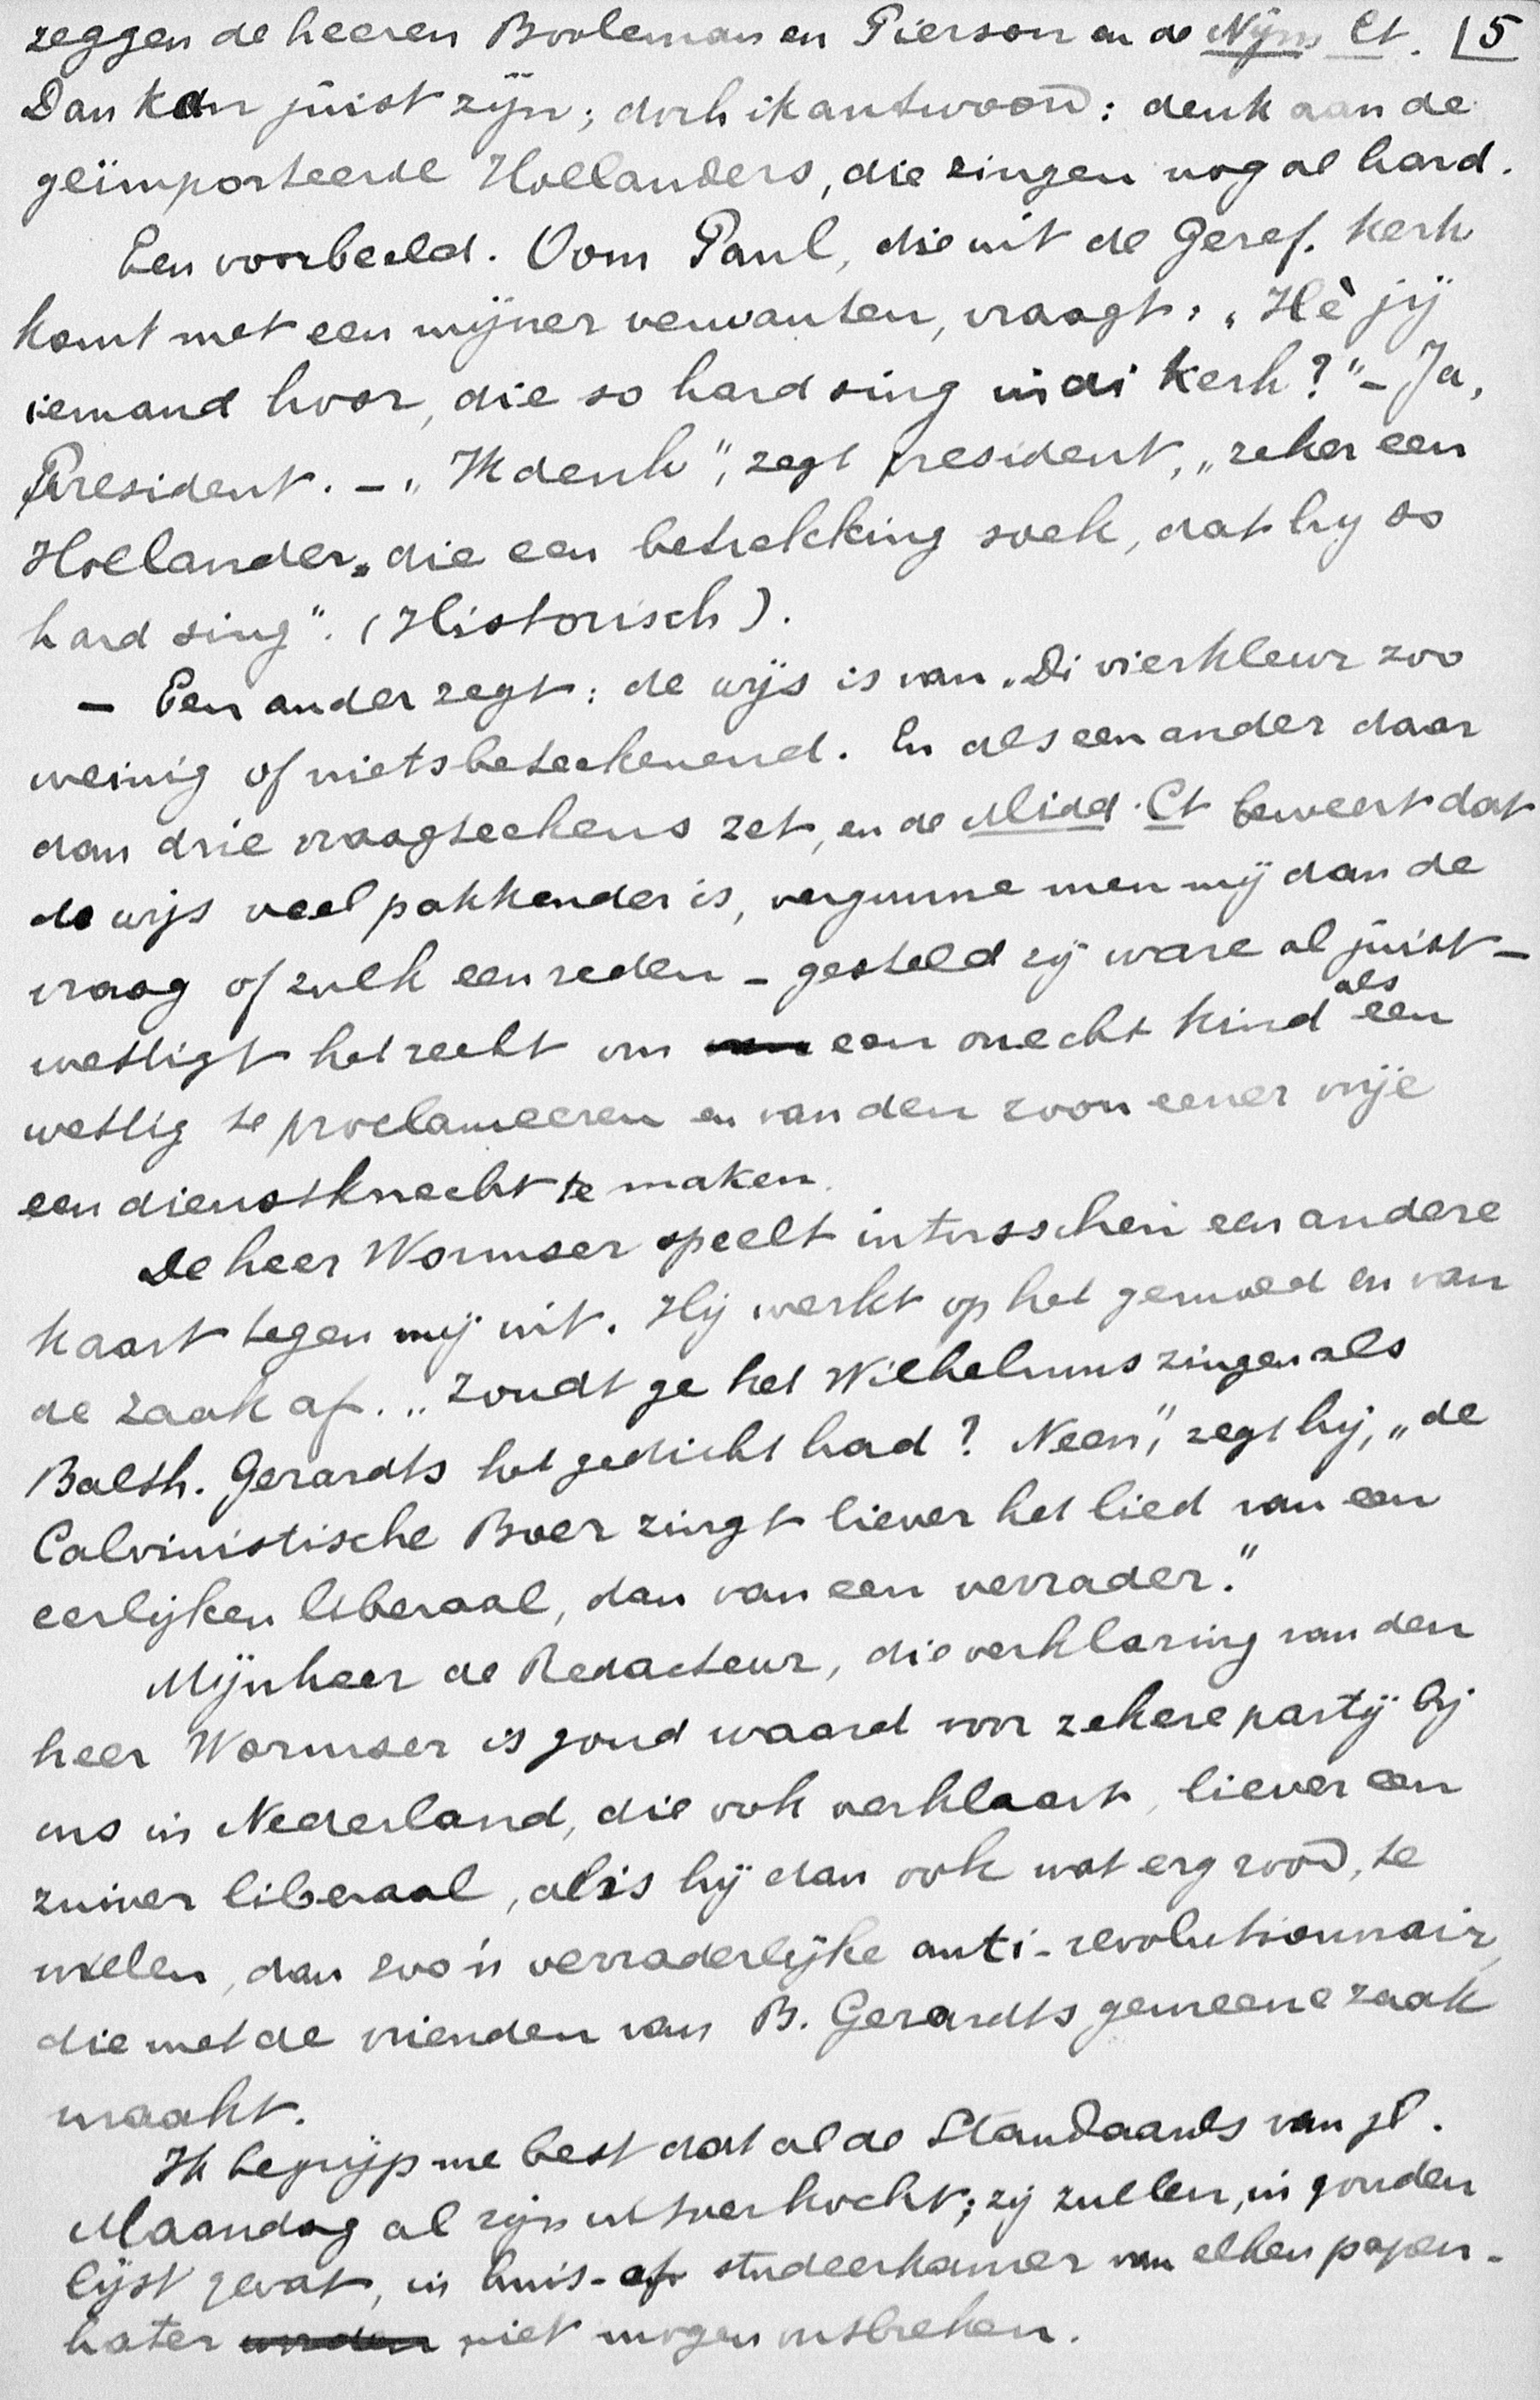 zeggen de heeren Booleman en Pierson en de Nijm. Ct. 5
Dan kan juist zijn; doch ik antwoord: denk aan de
geïmporteerde Hollanders, die zingen nog al hard.
Een voorbeeld. Oom Paul, die uit de Geref. Kerk
komt met een mijner verwanten, vraagt: „Hè jij
iemand hoor, die so hard sing in di kerk?" – Ja,
President. – „Ik denk", zegt president, „zeker een
Hollander, die een betrekking soek, dat hy so
hard sing". (Historisch).
– Een ander zegt: de wijs is van „Di vierkleur zoo
weinig of niets beteekenend. En als een ander daar
dan drie vraagteekens zet, en de Midd. Ct beweert dat
de wijs veel pakkender is, vergunne men mij dan de
vraag of zulk een reden – gesteld zij ware al juist –
wettigt het recht om een onecht kind als een
wettig te proclameeren en van den zoon eener vrije
een dienstknecht te maken.
De heer Wormser speelt intusschen een andere
kaart tegen mij uit. Hij werkt op het gemoed en van
de zaak af. „Zoudt ge het Wilhelmus zingen als
Balth. Gerardts het gedicht had? Neen", zegt hij, „de
Calvinistische Boer zingt liever het lied van een
eerlijken liberaal, dan van een verrader."
Mijnheer de Redacteur, die verklaring van den
heer Wormser is goud waard voor zekere partij bij
ons in Nederland, die ook verklaart, liever een
zuiver liberaal, al is hij dan ook wat erg rood, te
willen, dan zoo'n verraderlijke anti-revolutionnair,
die met de vrienden van B. Gerardts gemeene zaak
maakt.
Ik begrijp me best dat al de Standaards van jl.
Maandag al zijn uitverkocht; zij zullen, in gouden
lijst gevat, in huis- of studeerkamer van elken papen-
hater niet mogen ontbreken.